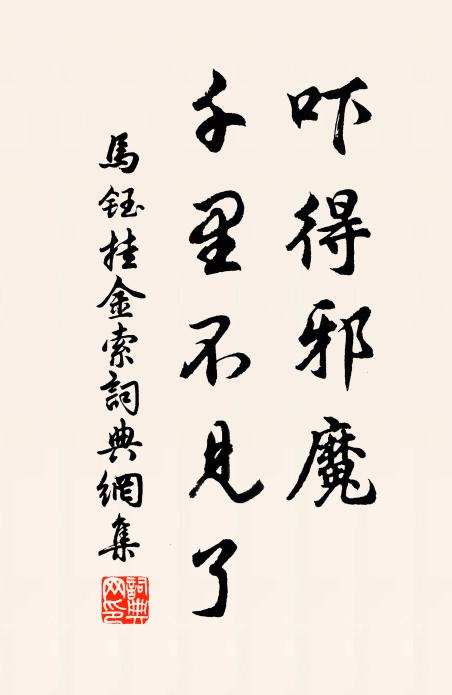 吓得邪魔
千里不見了
馬鈺挂金索詞典網集
詞典网印